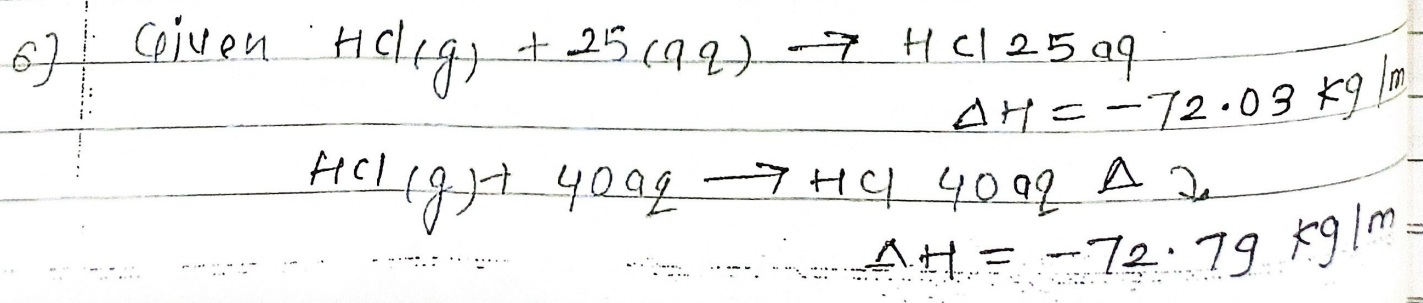 6} Given HCl(g) + 25(aq) → HCl 25 aq
ΔH = -72.03 kg/m
HCl(g) + 40aq → HCl 40aq Δ
ΔH = -72.79 kg/m